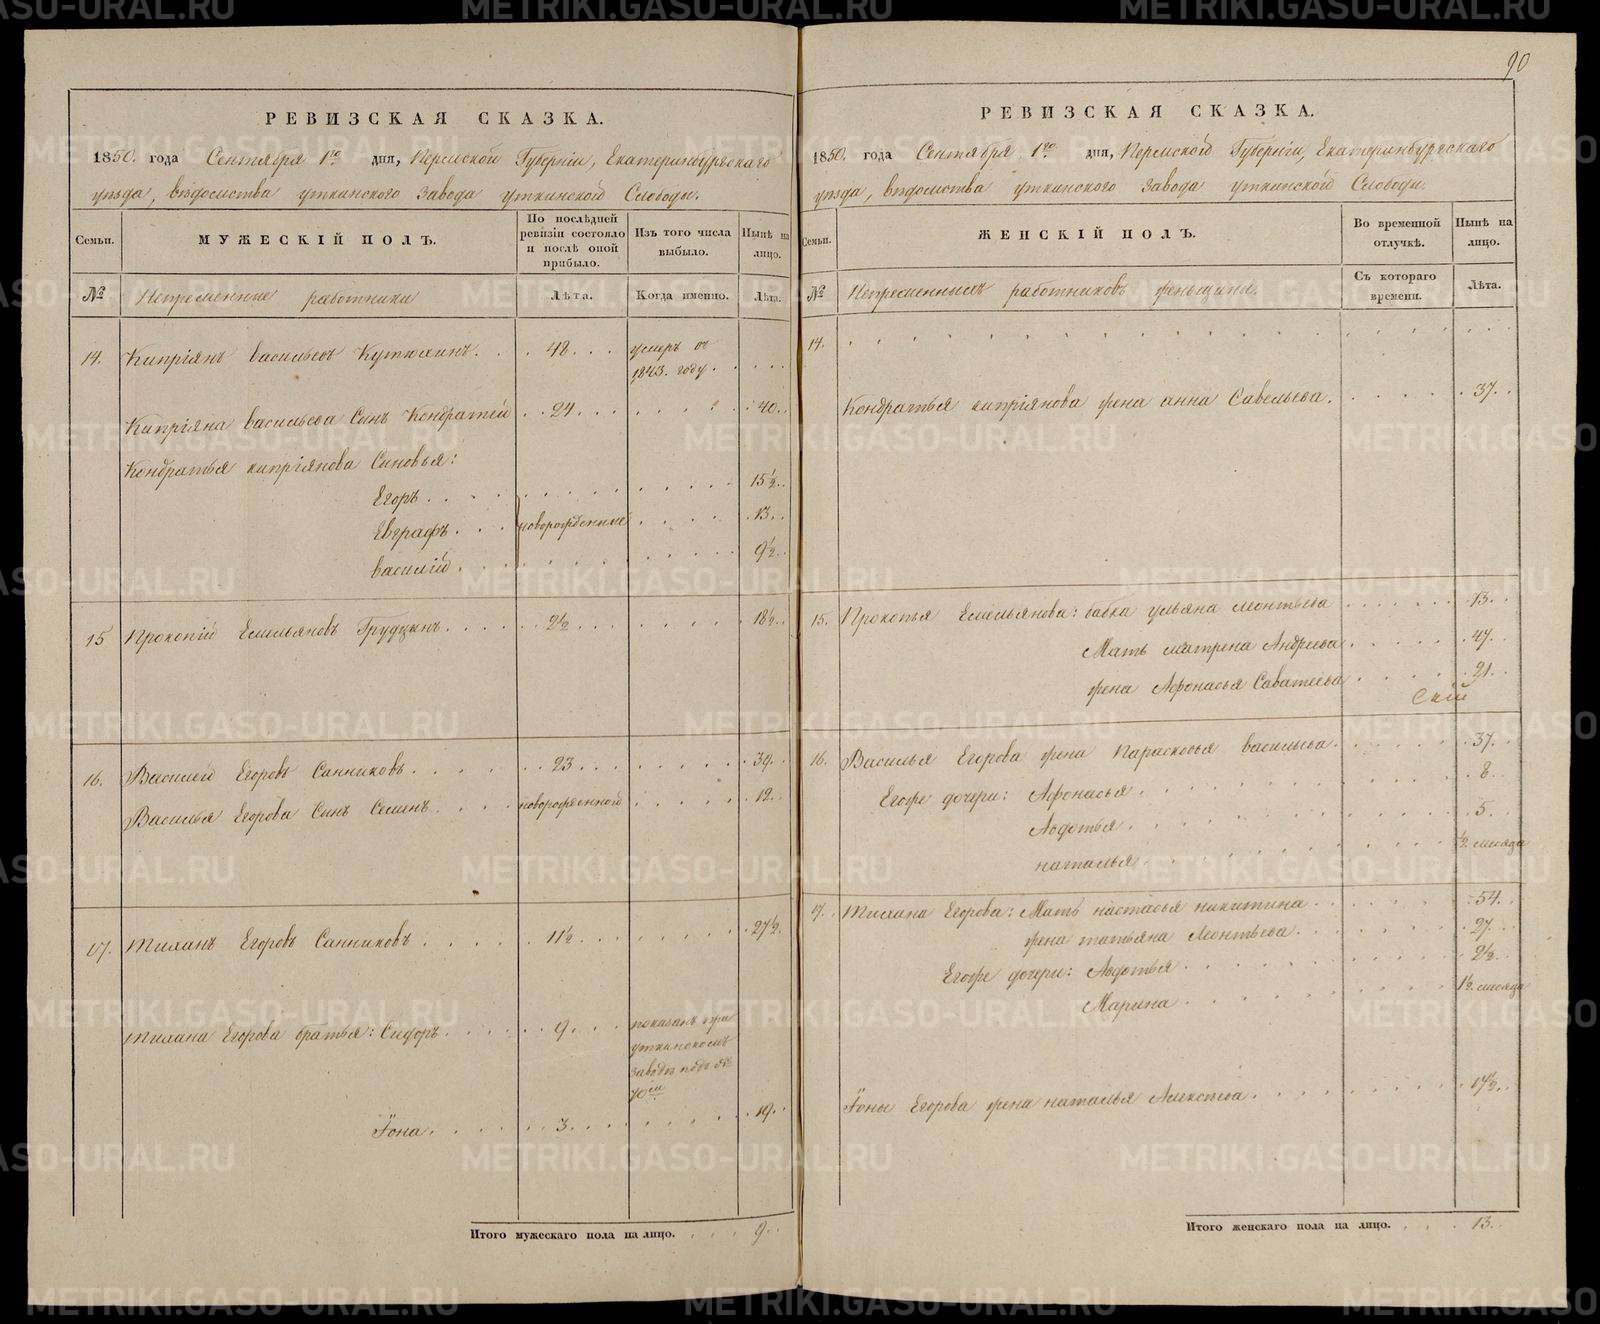 РЕВИЗСКАЯ СКАЗКА.
1850. года Сентября 1го дня, Пермской Губернiи, Екатеринбургскаго
уѣзда, вѣдомства уткинского завода уткинской Слободы.
Семьи. МУЖЕСКIЙ ПОЛЪ. По послѣдней ревизiи состояло и послѣ оной прибыло. Изъ того числа выбыло. Нынѣ на лицо.
№ Непременные работники Лѣта. Когда именно. Лѣта.
14. Кипрiянъ васильевъ Кутюхинъ. 48. умеръ въ
1843. году.
Кипрiяна васильева Сынъ Кондратiй 24. 40.
Кондратья кипрiянова Сыновья:
Егоръ. 15½.
Евграфъ. новорожденные 13.
василiй. 9½.
15 Прокопiй Емельяновъ Грудцынъ. 2½. 18½.
16. Василiй Егоровъ Санниковъ. 23. 39.
Василья Егорова Сынъ Семенъ. новорожденной 12.
17. тиханъ Егоровъ Санниковъ. 11½. 27½.
тихана Егорова братья: Сидоръ. 9. показанъ при
уткинскомъ
заводѣ подъ №
70мъ
Iона. 3. 19.
Итого мужескаго пола на лицо. 9.
90
РЕВИЗСКАЯ СКАЗКА.
1850. года Сентября 1го дня, Пермской Губернiи, Екатеринбургскаго
уѣзда, вѣдомства уткинского завода уткинской Слободы.
Семьи. ЖЕНСКIЙ ПОЛЪ. Во временной отлучкѣ. Нынѣ на лицо.
№ Непременныхъ работниковъ женьщины. Съ котораго времени. Лѣта.
14.
Кондратья кипрiянова жена анна Савельева. 37.
15. Прокопья Емельянова: бабка ульяна леонтьева 73.
Мать матрена Андреева 47.
жена Афонасья Саватеева 21.
16. Василья Егорова жена парасковья васильева. 37.
Егоже дочери: Афонасья. 8.
Авдотья. 5.
наталья. ½. месяца
17. тихана Егорова: Мать настасья никитина 54.
жена татьяна леонтьева. 27.
Егоже дочери: Авдотья. 2½.
Марина. 1½. месяца
Iоны Егорова жена наталья Алексеева. 17½.
Итого женскаго пола на лицо. 13.
METRIKI.GASO-URAL.RU